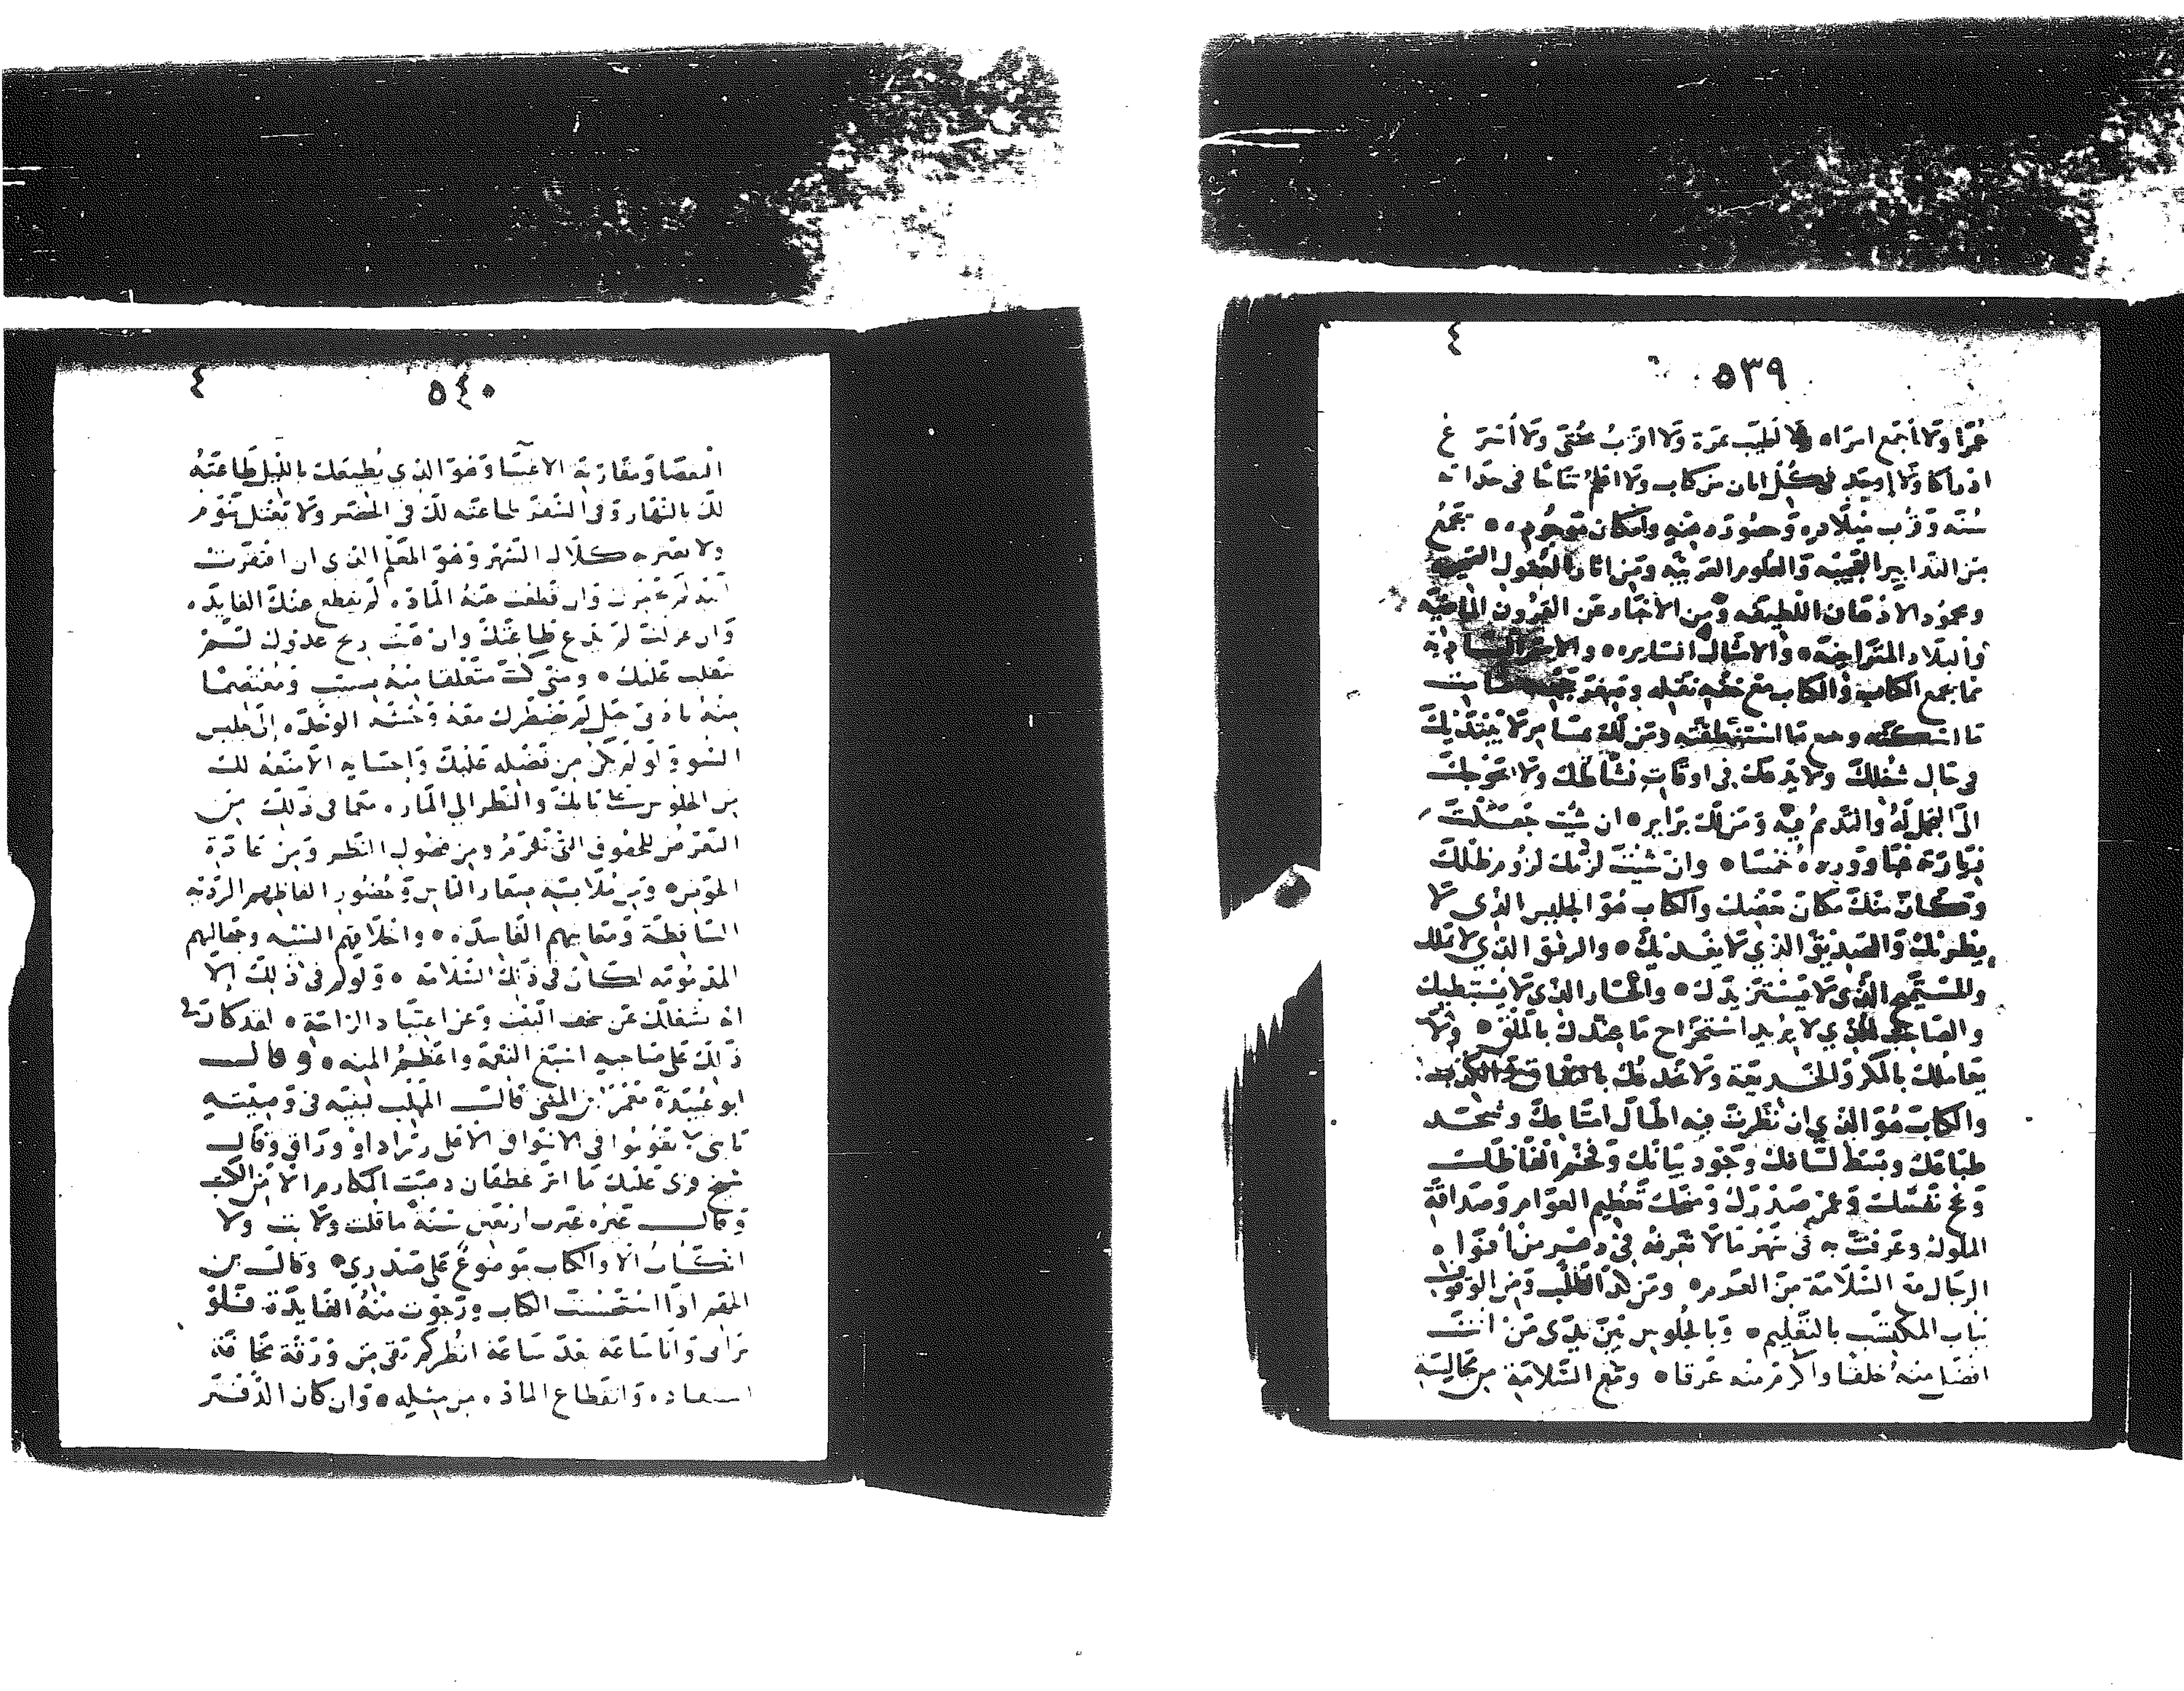 ٤
٥٣٩
عمرا ولا اجمع امراه ولا اطيب ثمرة ولا اقرب مجتنى ولا اسرع
ادراكا ولا اوجد في كل ابان من كتاب ولا اعلم نتاجا في حداثة
سنه وقرب ميلاده وحضوره وامكان موجوده يجمع
من التدابير العجيبه والعلوم الغريبه ومن اثار العقول
ومحمود الاذهان اللطيفه ومن الاخبار عن القرون الماضيه
والبلاد المتراخيه والامثال السايره والامم
ما يجمع الكتاب والكتاب مع خفة نقله صامت
ما اسكته وما استنطقته ومن لك بمسامر لا يبتديك
في حال شغلك ولا يدعك في اوقات نشاطك ولا يحوجك
الى التجمل له والتذمم منه ومن لك بزاير ان شيت جعلت
زيارته غبا ووروده خمسا وان شيت لزمك لزوم ظلك
وكان منك مكان بعضك والكتاب هو الجليس الذي لا
يطريك والصديق الذي لا يغريك والرفيق الذي لا يملك
والمستميح الذي لا يستزيدك والجار الذي لا يستبطيك
والصاحب الذي لا يريد استخراج ما عندك بالملق ولا
يعاملك بالمكر والخديعة ولا يخدعك بالنفاق
والكتاب هو الذي ان نظرت فيه اطال امتاعك وشحذ
طباعك وبسط لسانك وجود بيانك وفخم الفاظك
ونجح نفسك وعمر صدرك ومنحك تعظيم العوام وصداقة
الملوك وعرفت به في شهر ما لا تعرفه في دهر من افواه
الرجال مع السلامة من الغرم ومن كد الطلب ومن الوقوف
بباب المكتسب بالتعليم وبالجلوس بين يدى من انت
افضل منه خلقا واكرم منه عرقا ومع السلامة من مجالسة
٤
٥٤٠
البغضا ومقارنة الاغبيا وهو الذي يطيعك بالليل طاعته
لك بالنهار وفي السفر طاعته لك في الحضر ولا يعتل بنوم
ولا يعتريه كلال السهر وهو المعلم الذي ان افتقرت
اليه لم يحقرك وان قطعت عنه المادة لم يقطع عنك الفايده
وان عزلت لم يدع طاعتك وان هبت ريح عدوك لم
ينقلب عليك ومتى كنت متعلقا منه بسبب ومعتصما
منه بادنى حبل لم تضطرك معه وحشة الوحدة الى جليس
السو ولو لم يكن من فضله عليك واحسانه الا منعه لك
من الجلوس على بابك والنظر الى المارة مع ما في ذلك من
التعرض للحقوق التي تلزم ومن فضول النظر ومن عادة
الخوض ومن ملابسة صغار الناس وحضور الفاظهم الرديه
الساقطة ومعانيهم الفاسدة واخلاقهم السييه وجهالتهم
المذمومة لكان في ذلك السلامة ولو لم يكن في ذلك الا
انه يشغلك عن سخف المنى وعن اعتياد الراحة لقد كان له
ذلك على صاحبه اسبغ النعمة واعظم المنه وقال
ابو عبيدة معمر بن المثنى قال المهلب لبنيه في وصيته
يا بني لا تقوموا في الاسواق الا على زراد او وراق وقال
شيخ قرى عليك ماثر غطفان ذهبت المكارم الا من الكتب
وقال غيره غبرت اربعين سنة ما قلت ولا بت ولا
اتكات الا والكتاب موضوع على صدري وقال بن
الجهم اذا استحسنت الكتاب ورجوت منه الفايدة فلو
تراني وانا ساعة بعد ساعة انظر كم بقي من ورقة مخافة
استنفاده وانقطاع المادة من مثله وان كان الدفتر